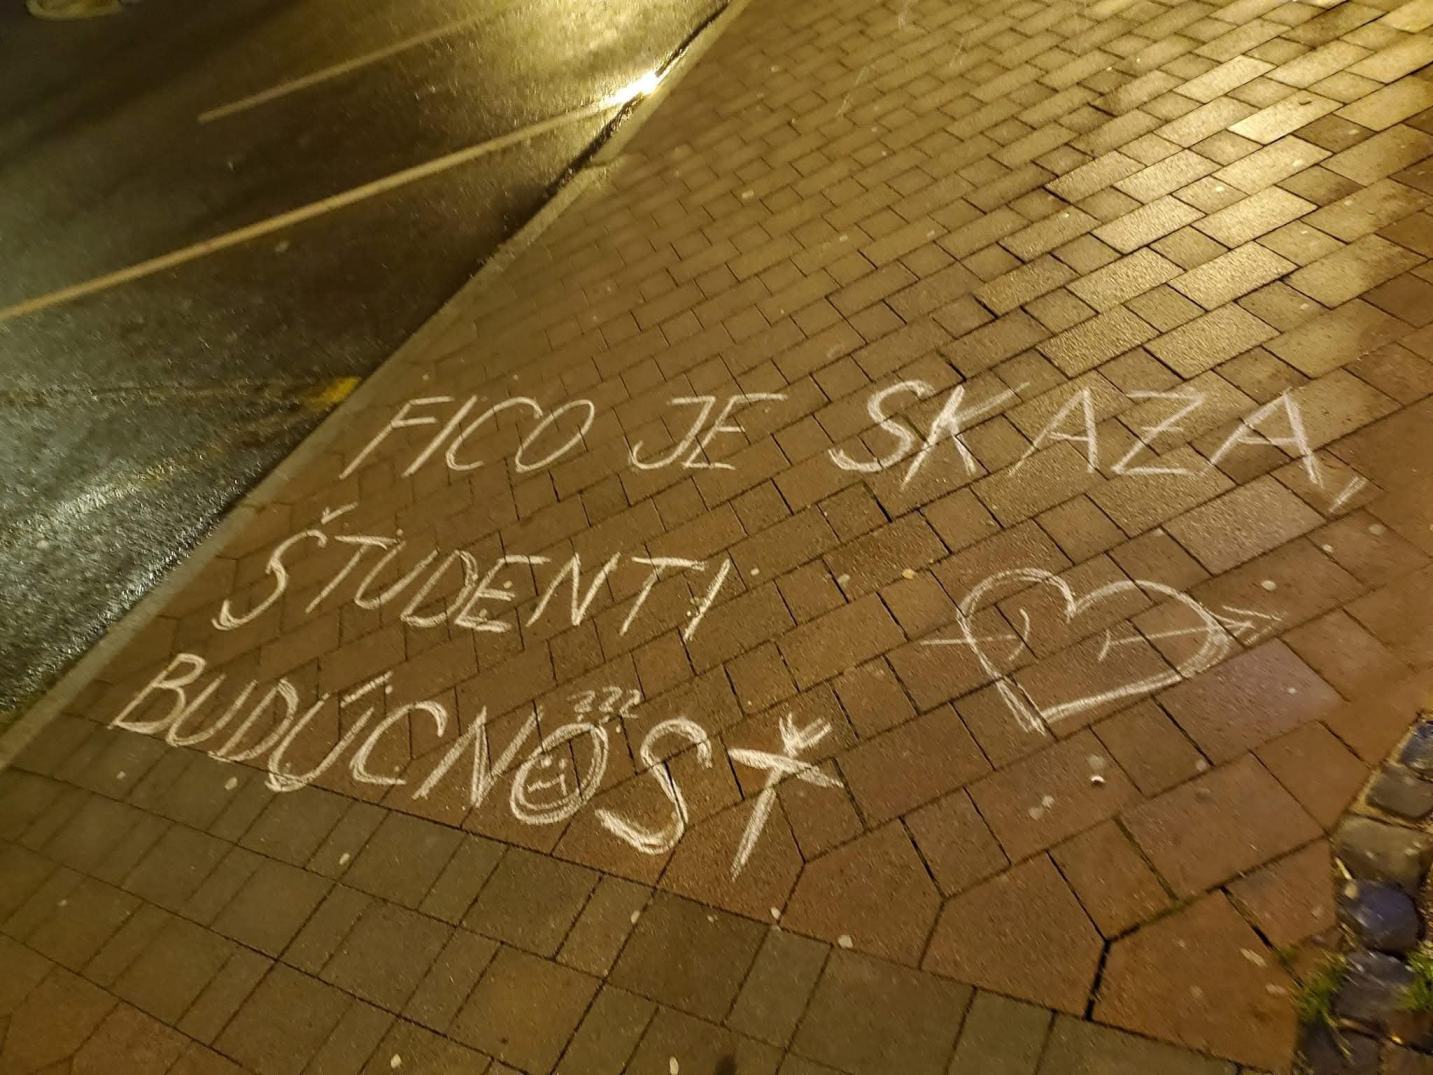 FICO JE SKAZA,
ŠTUDENTI
BUDÚCNOSŤ
???